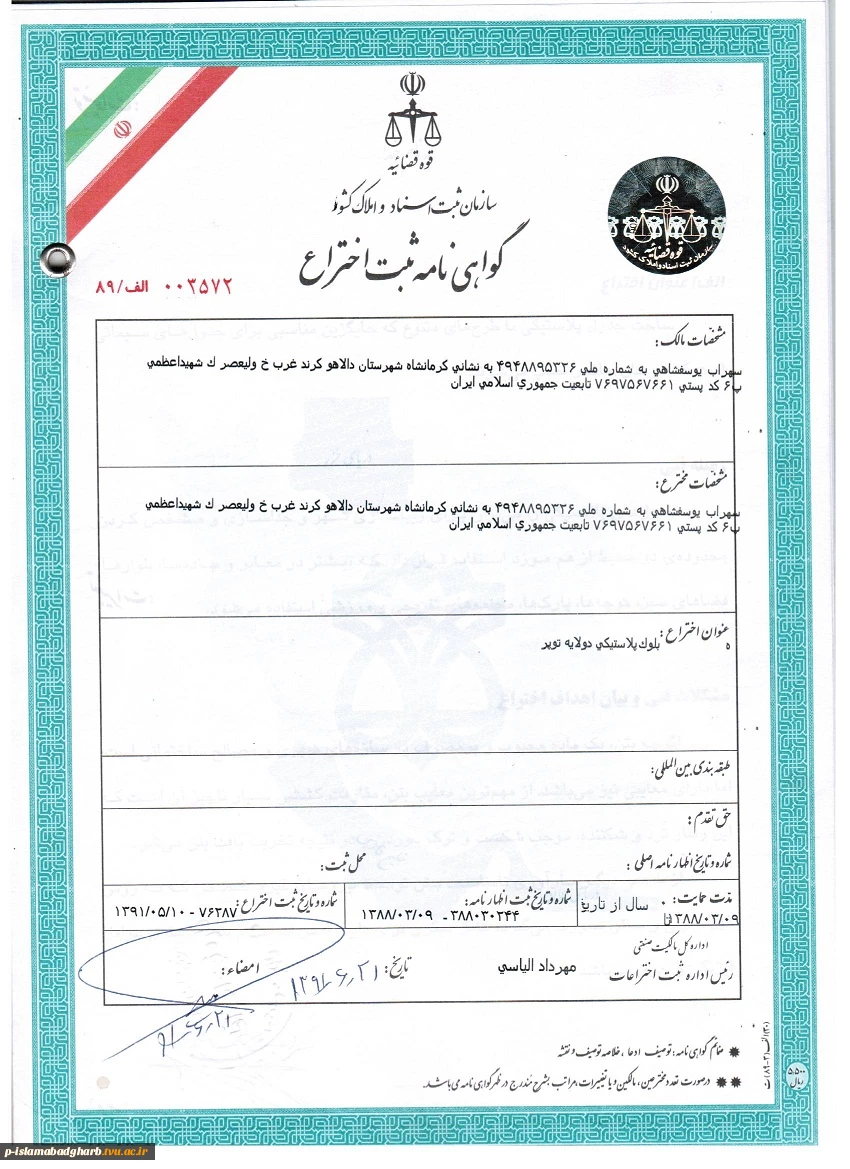 قوه قضائیه
سازمان ثبت اسناد و املاک کشور
گواهی نامه ثبت اختراع
قوه قضائیه
سازمان ثبت اسناد و املاک کشور
۰۰۳۵۷۲ الف/۸۹
مشخصات مالک:
سهراب یوسفشاهي به شماره ملي ۴۹۴۸۸۹۵۳۲۶ به نشاني کرمانشاه شهرستان دالاهو کرند غرب خ ولیعصر ك شهیداعظمي
پ۶ کد پستي ۷۶۹۷۵۶۷۶۶۱ تابعیت جمهوري اسلامي ایران
مشخصات مخترع:
سهراب یوسفشاهي به شماره ملي ۴۹۴۸۸۹۵۳۲۶ به نشاني کرمانشاه شهرستان دالاهو کرند غرب خ ولیعصر ك شهیداعظمي
پ۶ کد پستي ۷۶۹۷۵۶۷۶۶۱ تابعیت جمهوري اسلامي ایران
عنوان اختراع: بلوك پلاستیکي دولایه توپر
طبقه بندی بین المللی:
حق تقدم:
شماره و تاریخ اظهار نامه اصلی: محل ثبت:
مدت حمایت: ۰ سال از تاریخ
۱۳۸۸/۰۳/۰۹
شماره و تاریخ ثبت اظهار نامه:
۳۸۸۰۳۰۲۴۴ - ۱۳۸۸/۰۳/۰۹
شماره و تاریخ ثبت اختراع:
۷۶۲۸۷ - ۱۳۹۱/۰۵/۱۰
اداره کل مالکیت صنعتی
رئیس اداره ثبت اختراعات
مهرداد الیاسي
تاریخ: ۱۳۹۱٫۶٫۲۱
امضاء:
۹۱٫۶٫۲۱
ضمائم گواهی نامه: توصیف ادعا، خلاصه توصیف و نقشه
درصورت تعدد مخترعین، مالکین و یا تغییرات، مراتب بشرح مندرج در ظهر گواهی نامه می باشد.
۵۵۰۰
ریال
p-islamabadgharb.tvu.ac.ir